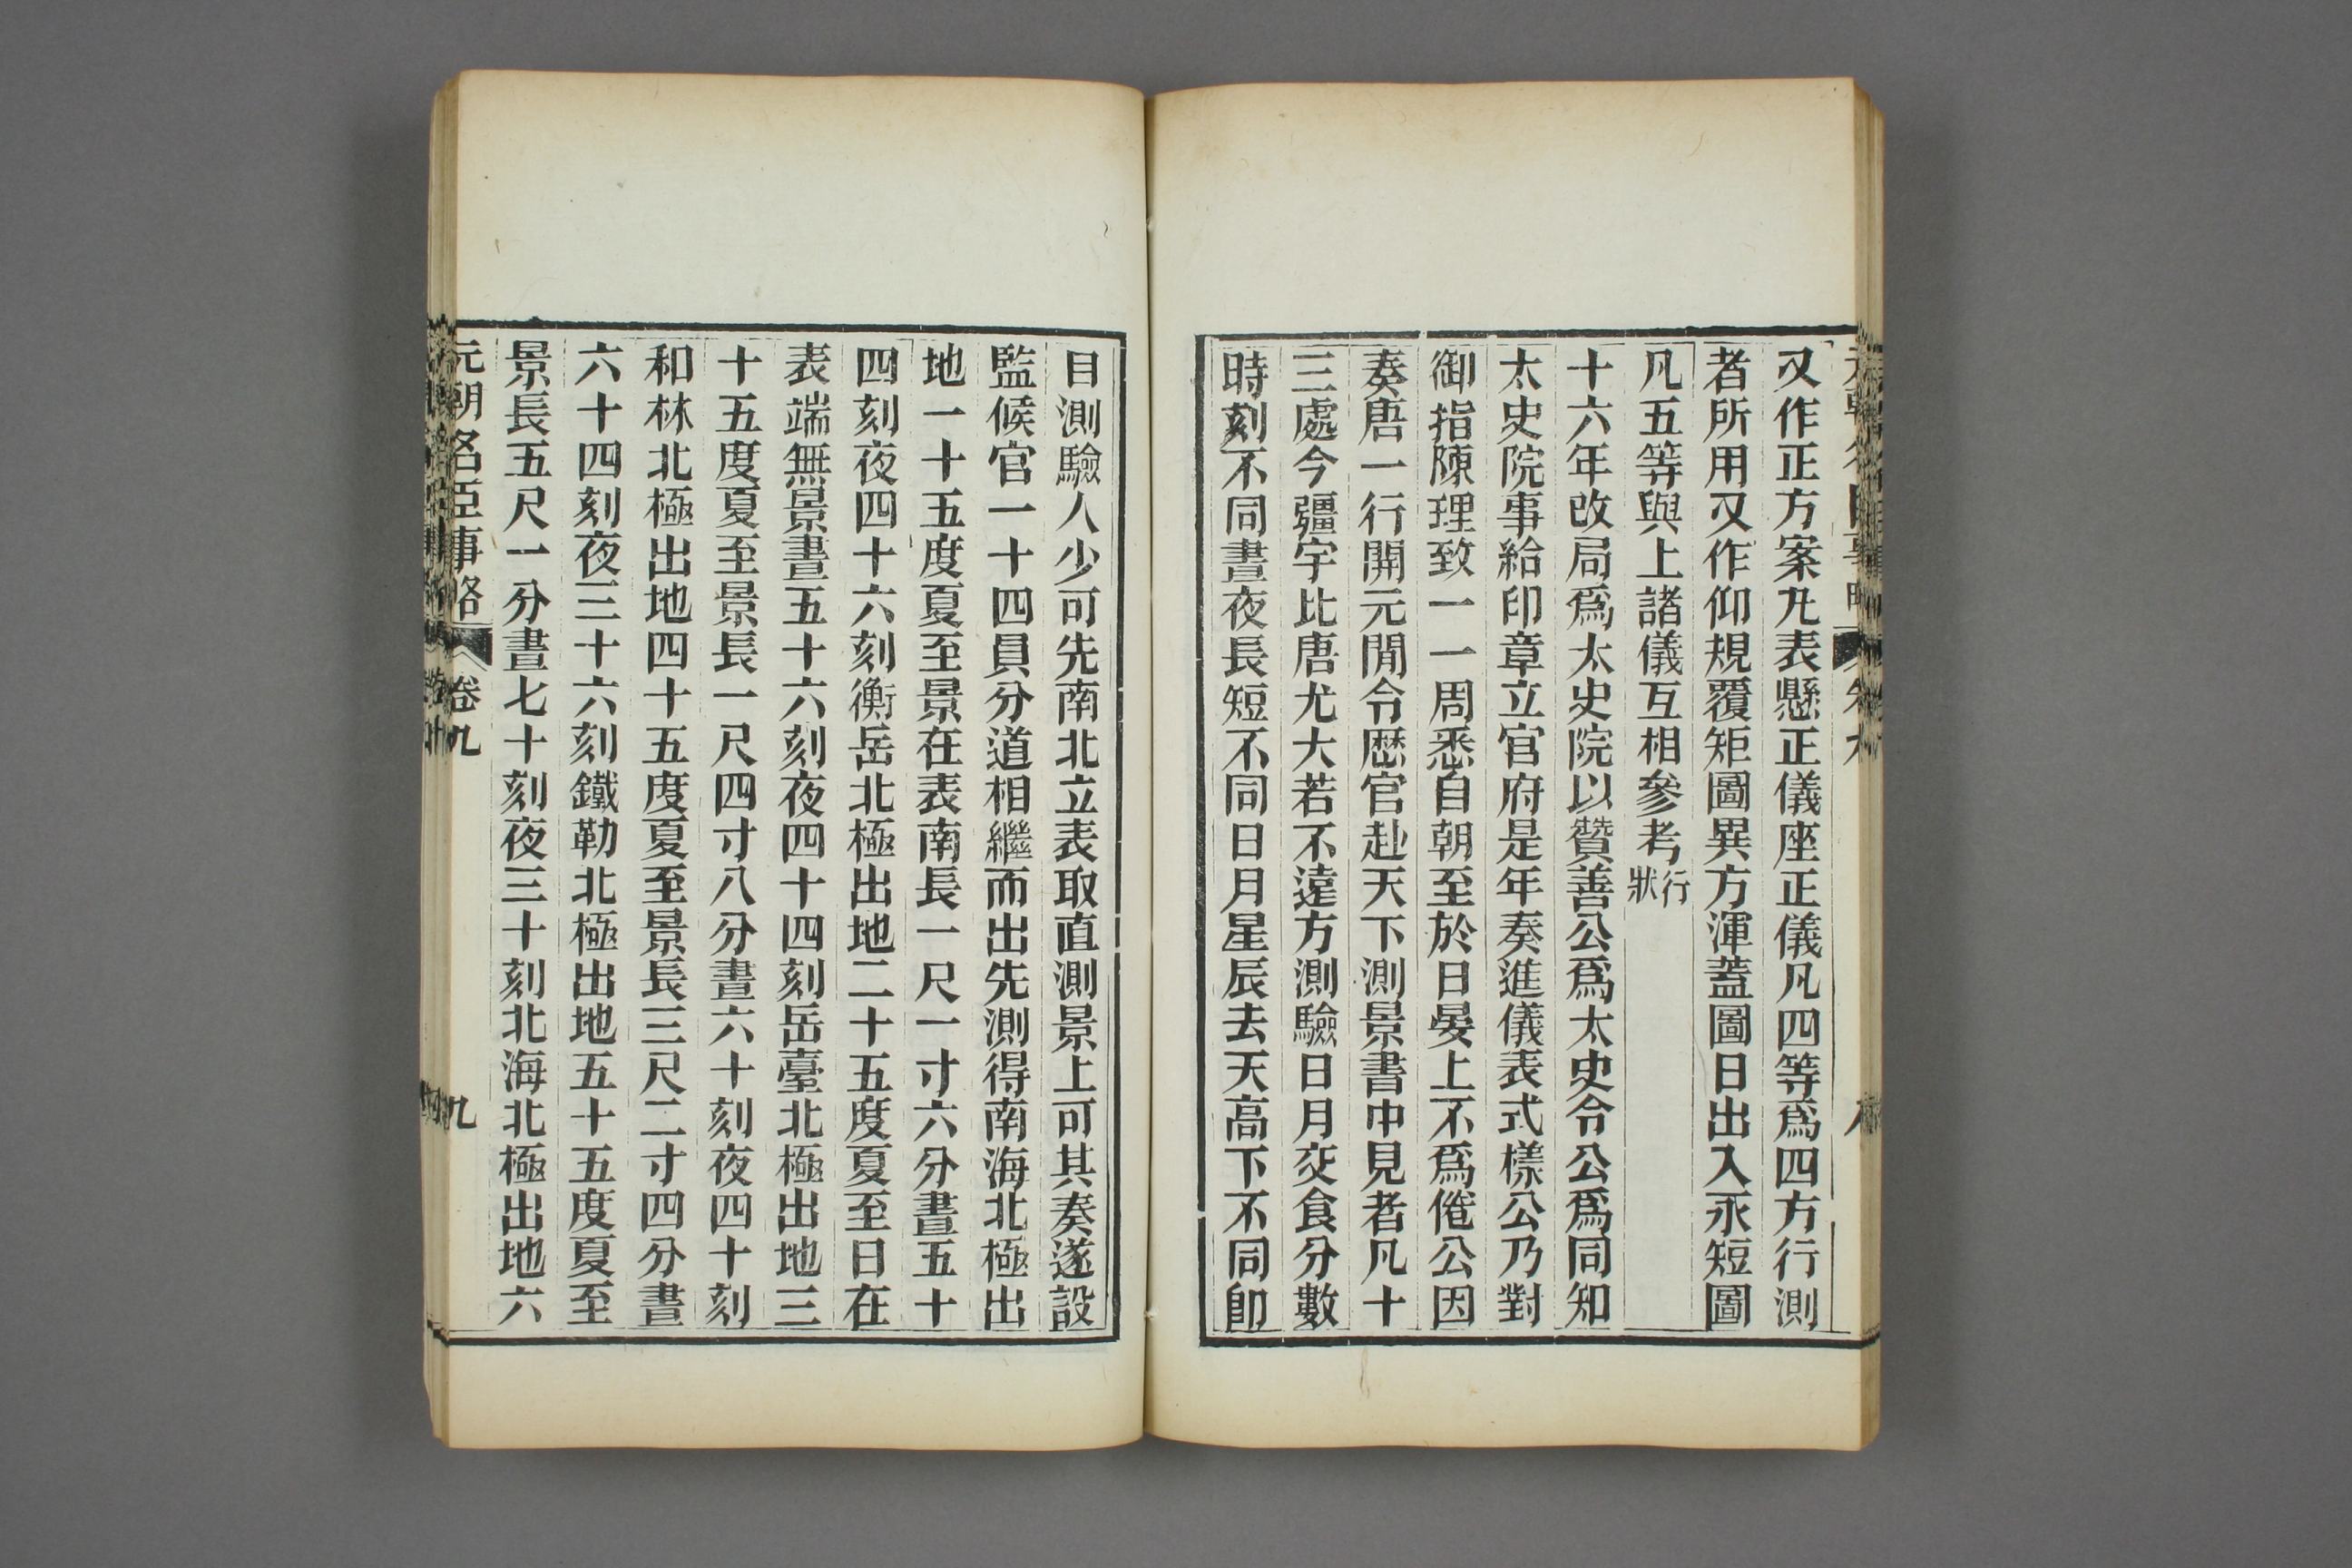 又作正方案九表懸正儀座正儀凡四等爲四方行測
者所用又作仰規覆矩圖異方渾蓋圖日出入永短圖
凡五等與上諸儀互相參考行狀
十六年改局爲太史院以贊善公爲太史令公爲同知
太史院事給印章立官府是年奏進儀表式樣公乃對
御指陳理致一一周悉自朝至於日晏上不爲倦公因
奏唐一行開元閒令歷官赴天下測景書中見者凡十
三處今疆宇比唐尤大若不遠方測驗日月交食分數
時刻不同晝夜長短不同日月星辰去天高下不同卽
目測驗人少可先南北立表取直測景上可其奏遂設
監候官一十四員分道相繼而出先測得南海北極出
地一十五度夏至景在表南長一尺一寸六分晝五十
四刻夜四十六刻衡岳北極出地二十五度夏至日在
表端無景晝五十六刻夜四十四刻岳臺北極出地三
十五度夏至景長一尺四寸八分晝六十刻夜四十刻
和林北極出地四十五度夏至景長三尺二寸四分晝
六十四刻夜三十六刻鐵勒北極出地五十五度夏至
景長五尺一分晝七十刻夜三十刻北海北極出地六
元朝名臣事略 卷九 九